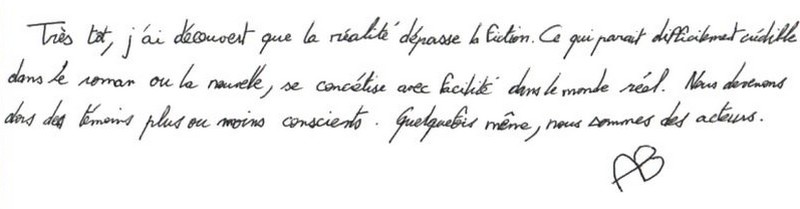 Très tot, j'ai découvert que la réalité dépasse la fiction. Ce qui parait difficilement crédible
dans le roman ou la nouvelle, se concrétise avec facilité dans le monde réel. Nous devenons
alors des témoins plus ou moins conscients. Quelquefois même, nous sommes des acteurs.
AB